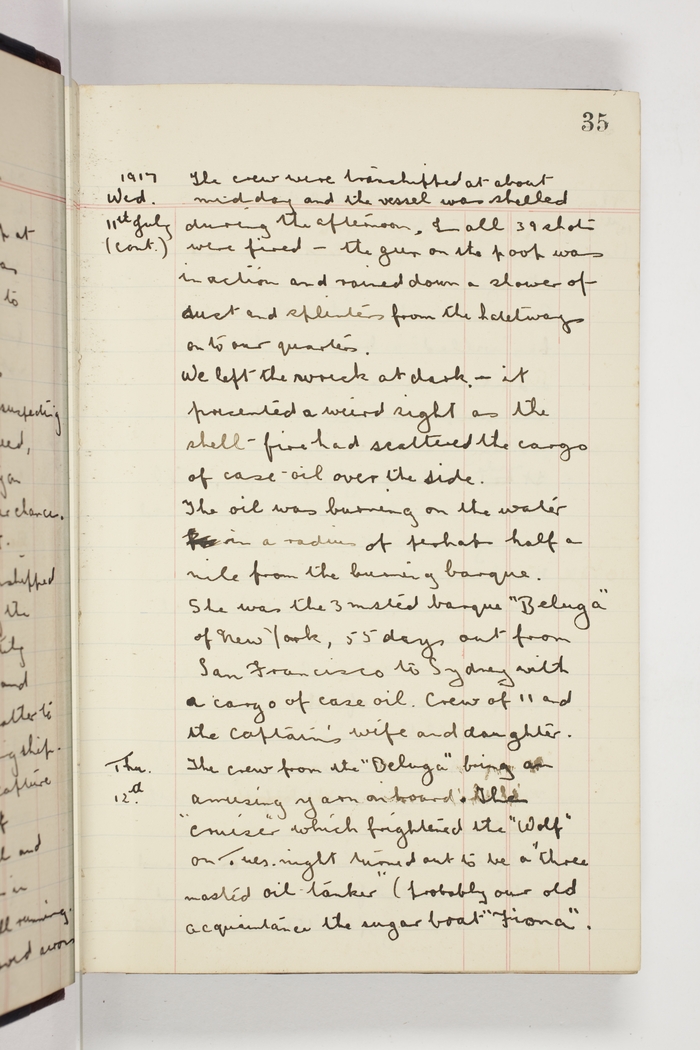 35
1917 The crew were transhipped at about
Wed. midday and the vessel was shelled
11th July during the afternoon, In all 39 shots
(cont.) were fired – the gun on the poop was
in action and rained down a shower of
dust and splinters from the hatchways
onto our quarters.
We left the wreck at dark. – it
presented a weird sight as the
shell-fire had scattered the cargo
of case-oil over the side.
The oil was burning on the water
in a radius of perhaps half a
mile from the burning barque.
She was the 3 masted barque "Beluga"
of New York, 55 days out from
San Francisco to Sydney with
a cargo of case oil. Crew of 11 and
the captain's wife and daughter.
Thu. The crew from the "Beluga" bring an
12th amusing yarn on board. The
"cruiser" which frightened the "Wolf"
on Tues. night turned out to be a "three
masted oil tanker" (probably our old
acquaintance the sugar boat "Fiona".
suspecting
eed,
chance.
shipped
the
and
matter to
ship.
capture
of
and
in
running.